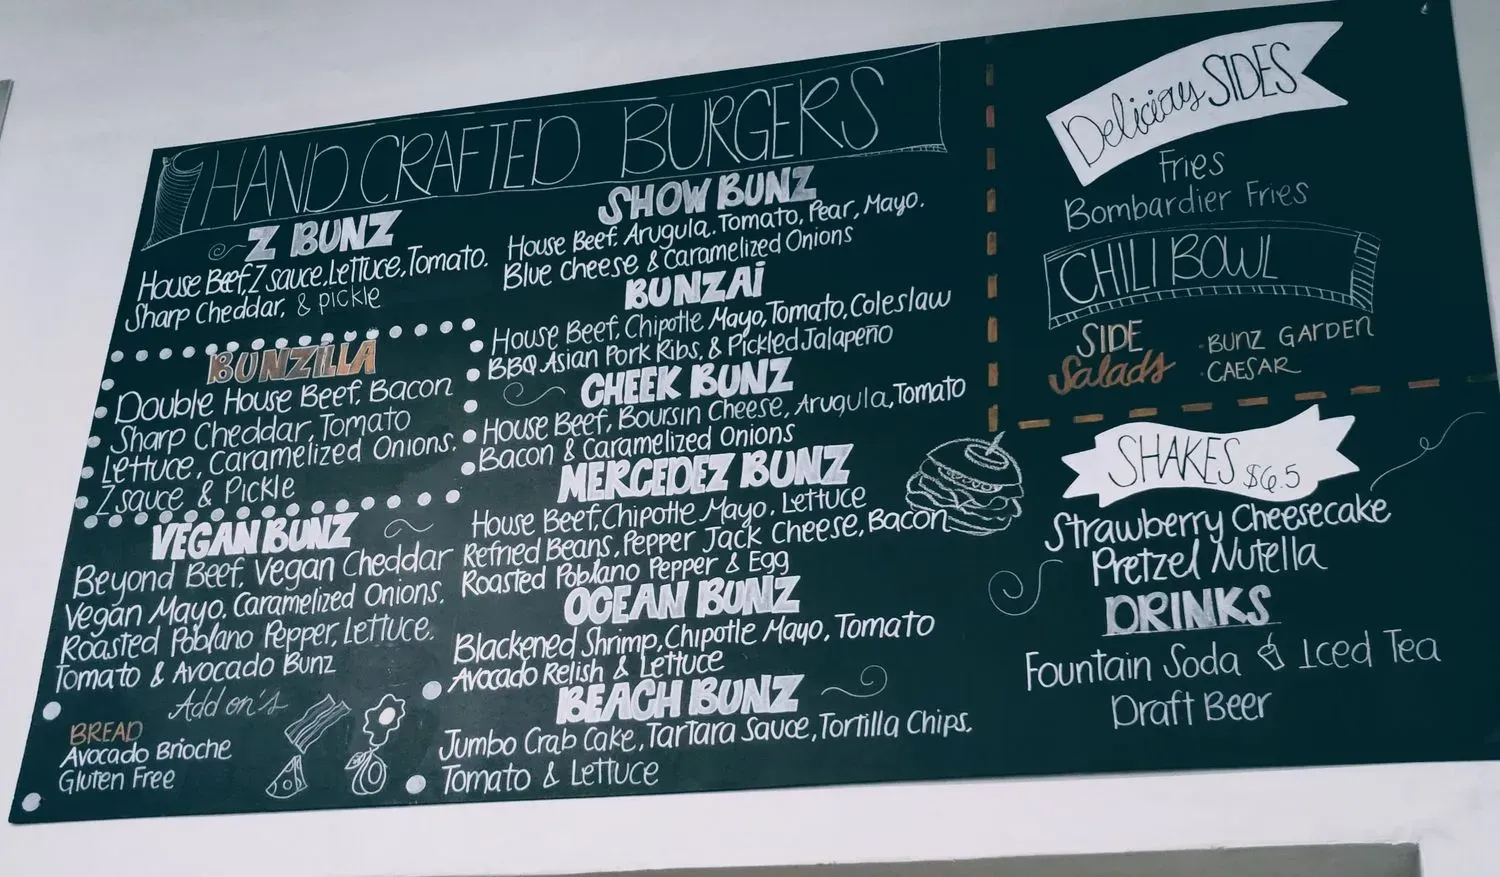 HAND CRAFTED BURGERS
Z BUNZ
House Beef, Z sauce, Lettuce, Tomato.
Sharp Cheddar, & pickle
BUNZILLA
Double House Beef, Bacon
Sharp Cheddar, Tomato
Lettuce, Caramelized Onions.
Z sauce & Pickle
VEGAN BUNZ
Beyond Beef, Vegan Cheddar
Vegan Mayo, Caramelized Onions.
Roasted Poblano Pepper, Lettuce.
Tomato & Avocado Bunz
Add on's
BREAD
Avocado Brioche
Gluten Free
SHOW BUNZ
House Beef. Arugula. Tomato, Pear, Mayo.
Blue cheese & Caramelized Onions
BUNZAi
House Beef, Chipotle Mayo, Tomato, Coleslaw
BBQ Asian Pork Ribs, & Pickled Jalapeño
CHEEK BUNZ
House Beef, Boursin Cheese, Arugula, Tomato
Bacon & Caramelized Onions
MERCEDEZ BUNZ
House Beef, Chipotle Mayo, Lettuce
Refried Beans, Pepper Jack Cheese, Bacon
Roasted Poblano Pepper & Egg
OCEAN BUNZ
Blackened Shrimp, Chipotle Mayo, Tomato
Avocado Relish & Lettuce
BEACH BUNZ
Jumbo Crab Cake, Tartara Sauce, Tortilla Chips.
Tomato & Lettuce
Delicious SIDES
Fries
Bombardier Fries
CHILI BOWL
SIDE
Salads
· BUNZ GARDEN
· CAESAR
SHAKES $6.5
Strawberry Cheesecake
Pretzel Nutella
DRINKS
Fountain Soda Iced Tea
Draft Beer